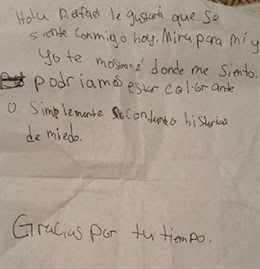 Hola Rafael le gustará que se
siente conmigo hoy. Mira para mí y
Yo te mostraré donde me siento.
podríamos estar colorante
o simplemente contanto historias
de miedo.
Gracias por tu tiempo.